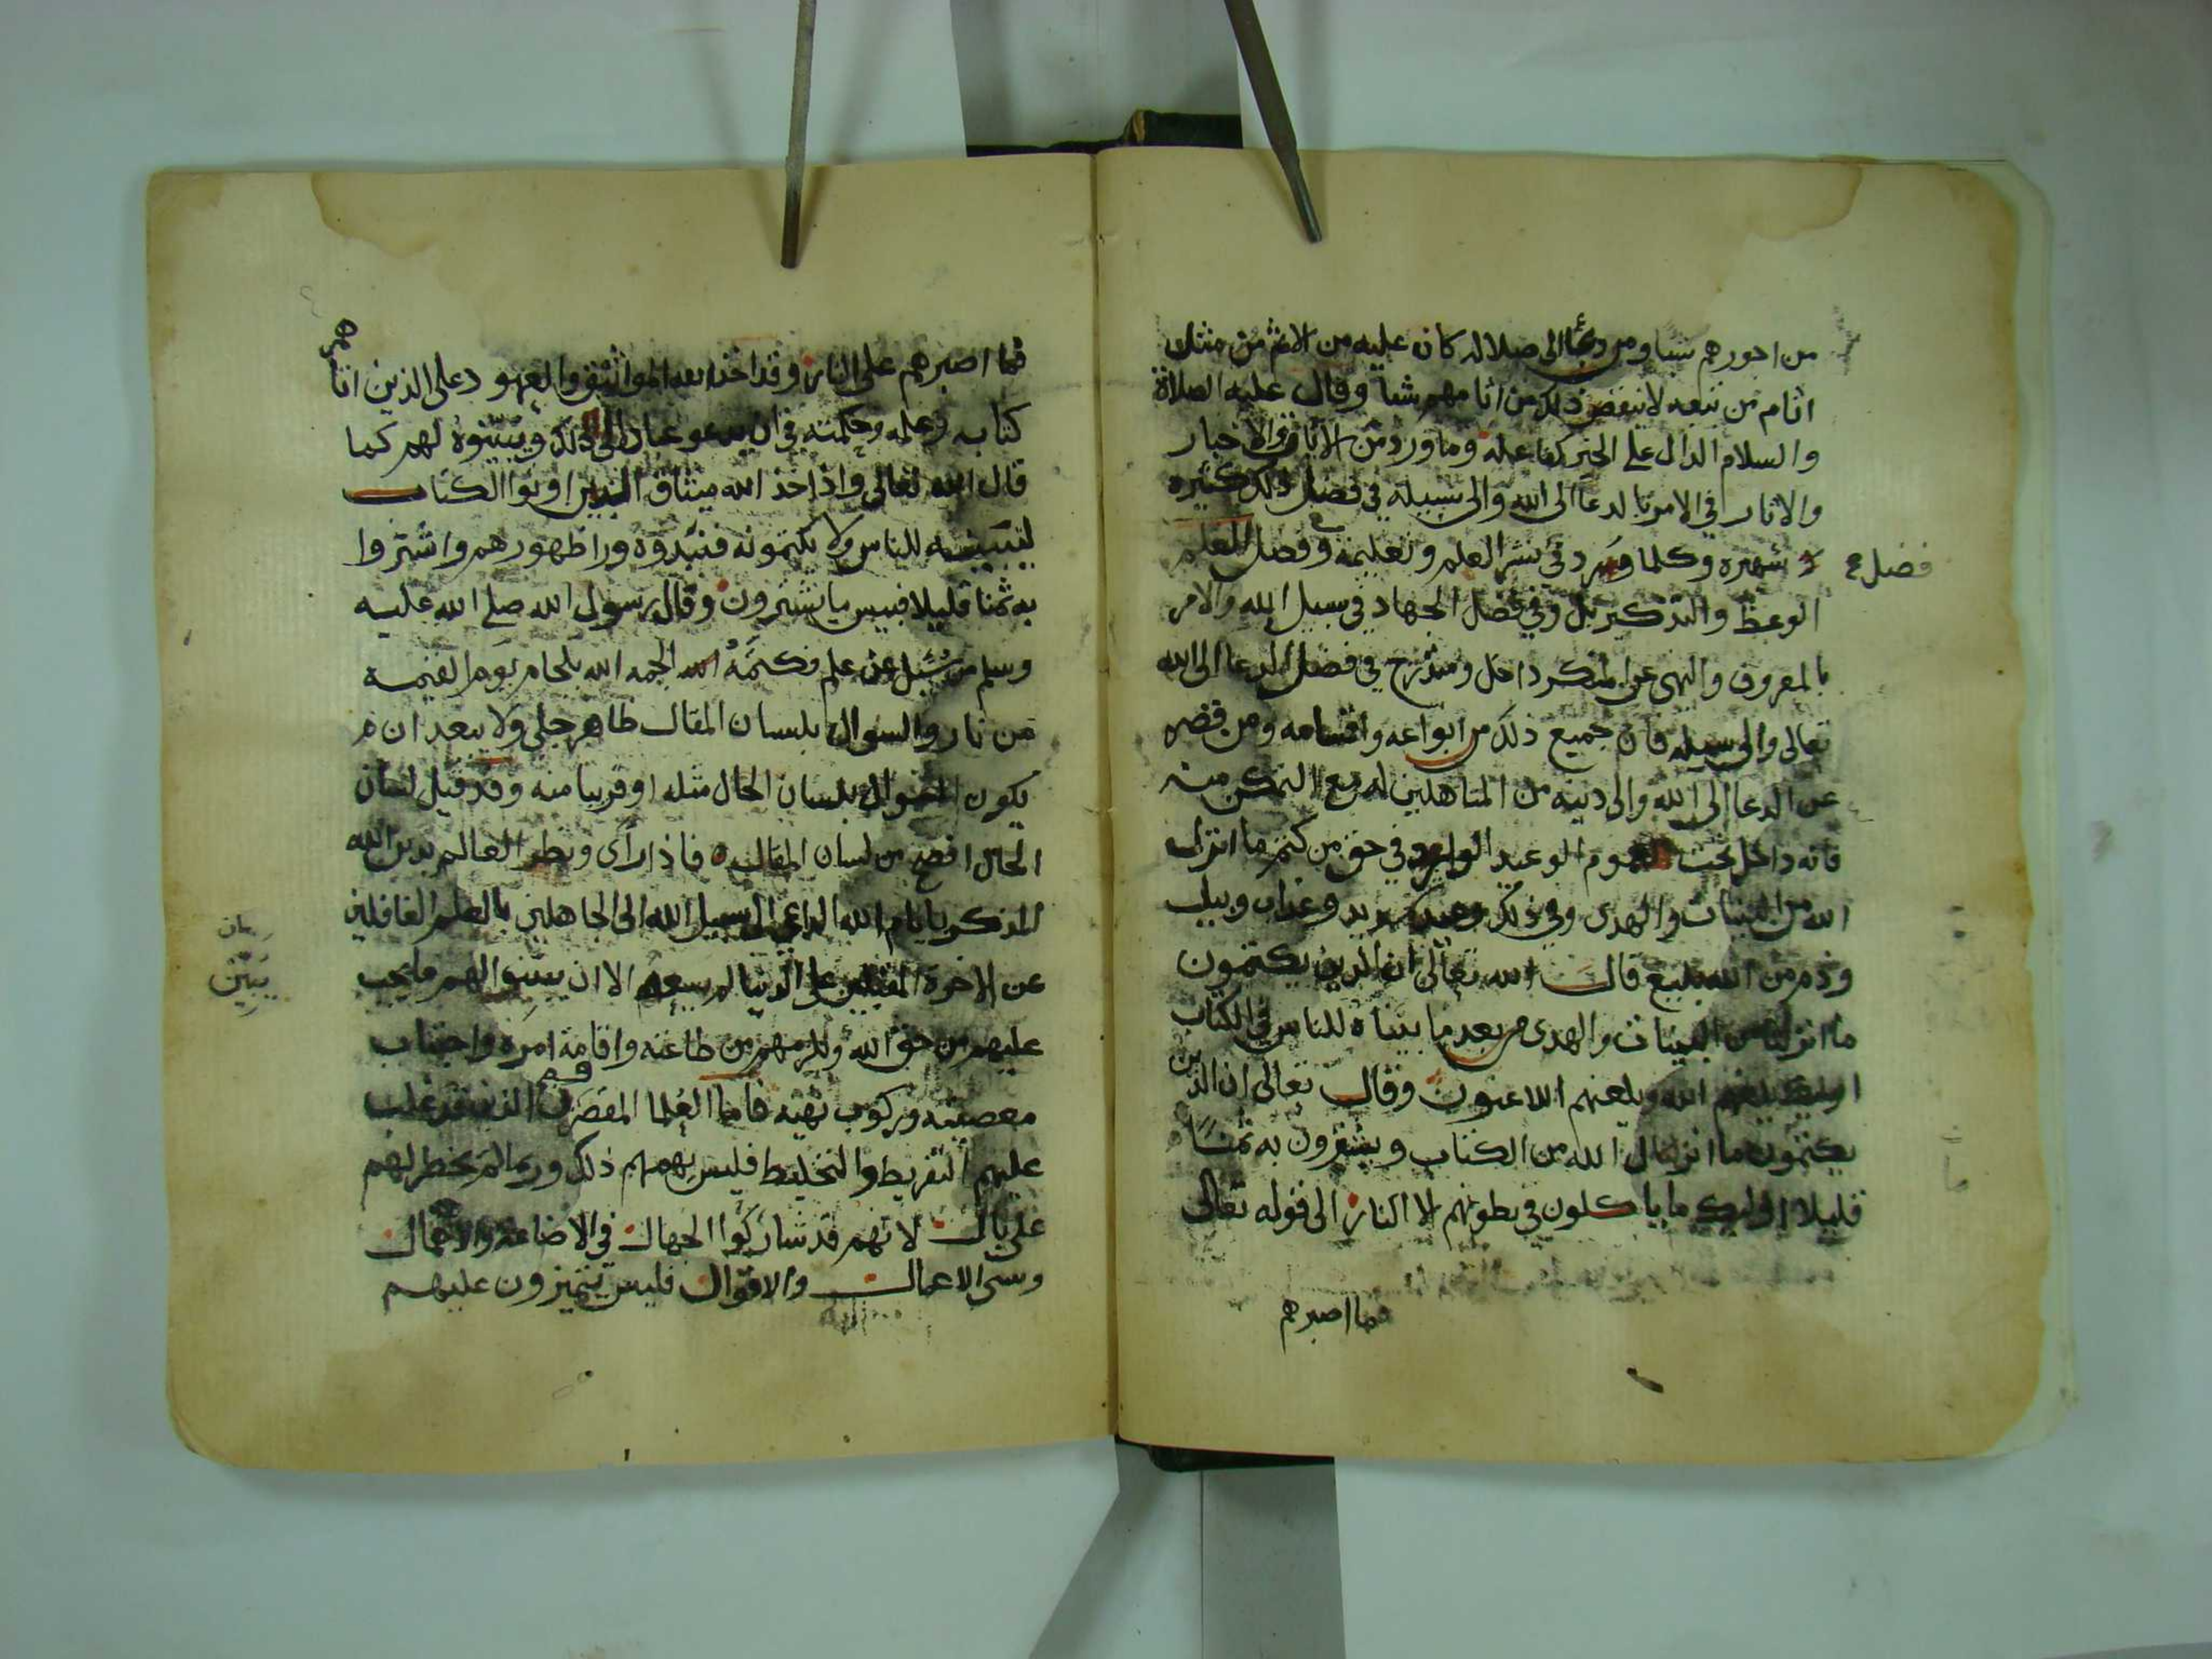 من اجورهم شيا ومن دعا الى ضلاله كان عليه من الاثم من مثل
اثام من تبعه لا ينقص ذلك من اثامهم شيا وقال عليه الصلاة
والسلام الدال على الخير كفاعله وما ورد من الايات والاخبار
والاثار في الامر بالدعا الى الله والى سبيله في فضل ذلك كثيره
شهيره وكلما ورد في نشر العلم وتعليمه وفضل العلم
فضل
الوعظ والتذكير بل وفي فضل الجهاد في سبيل الله والامر
بالمعروف والنهي عن المنكر داخل ومندرج في فضل الدعا الى الله
تعالى والى سبيله فان جميع ذلك من ابواعه واقسامه ومن قصر
عن الدعا الى الله والى دينه من المتاهلين له مع التمكن منه
فانه داخل تحت عموم الوعيد الوارد في حق من كتم ما انزل
الله من البينات والهدى وفي ذلك وعيد شديد وعذاب وبيل
وذم من الله بليغ قال الله تعالى ان الذين يكتمون
ما انزلنا من البينات والهدى من بعد ما بيناه للناس في الكتاب
اوليك يلعنهم الله ويلعنهم اللاعنون وقال تعالى ان الذين
يكتمون ما انزل الله من الكتاب ويشترون به ثمنا
قليلا اوليك ما ياكلون في بطونهم الا النار الى قوله تعالى
فما اصبرهم
فما اصبرهم على النار وقد اخذ الله المواثيق والعهود على الذين اتاهم
كتابه وعلمه وحكمته في ان يدعو عباده الى ذلك ويبينوه لهم كما
قال الله تعالى واذ اخذ الله ميثاق الذين اوتوا الكتاب
لتبيننه للناس ولا تكتمونه فنبذوه ورا ظهورهم واشتروا
به ثمنا قليلا فبيس ما يشترون وقال رسول الله صلى الله عليه
وسلم من سيل عن علم فكتمه الجمه الله بلجام يوم القيمه
من نار والسوال بلسان المقال ظاهر جلي ولا يبعد ان
يكون السوال بلسان الحال مثله او قريبا منه وقد قيل لسان
الحال افصح من لسان المقال فاذا راى ونظر العالم بدين الله
المذكر بايام الله الداعي الى سبيل الله الى الجاهلين بالعلم الغافلين
عن الاخرة المقبلين على الدنيا لم يسعه الا ان يبينوا لهم ما يجب
بيان
يبين
عليهم من حق الله ولزمهم من طاعته واقامة امره واجتناب
معصيته وركوب نهيه فاما العلما المقصرون الذين قد غلب
عليهم التفريط والتخليط فليس يهمهم ذلك وربما لم يخطر لهم
على بال لانهم قد شاركوا الجهال في الاضاعة والاهمال
وسي الاعمال والاقوال فليس يتميزون عليهم